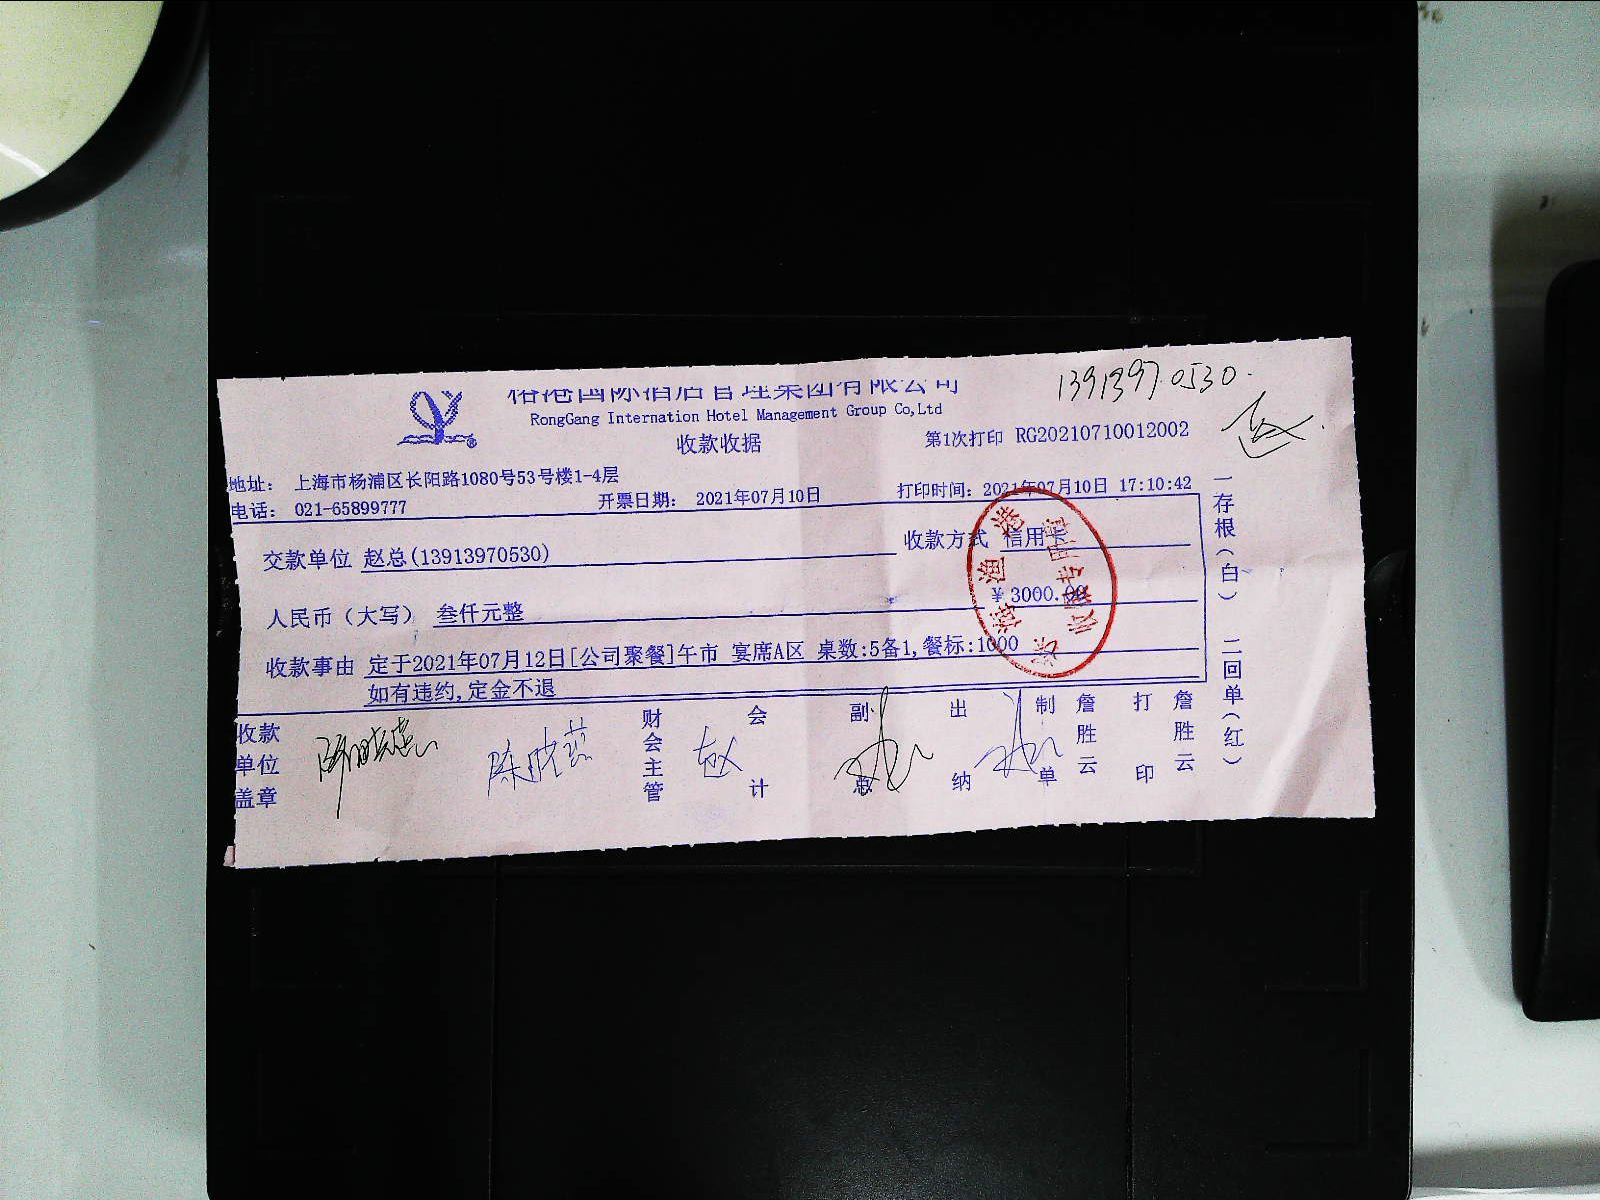 国际酒店管理集团有限公司
RongGang Internation Hotel Management Group Co,Ltd
13913970530.
收款收据
第1次打印 RG20210710012002
赵
地址: 上海市杨浦区长阳路1080号53号楼1-4层
电话: 021-65899777
开票日期: 2021年07月10日
打印时间: 2021年07月10日 17:10:42
交款单位 赵总(13913970530)
收款方式 信用
人民币(大写) 叁仟元整
¥3000.
收款事由 定于2021年07月12日[公司聚餐]午市 宴席A区 桌数:5备1,餐标:1000
如有违约,定金不退
收款单位盖章
陈晓燕
财会主管
赵
会计
副总
出纳
制单
詹胜云
打印
詹胜云
一存根(白) 二回单(红)